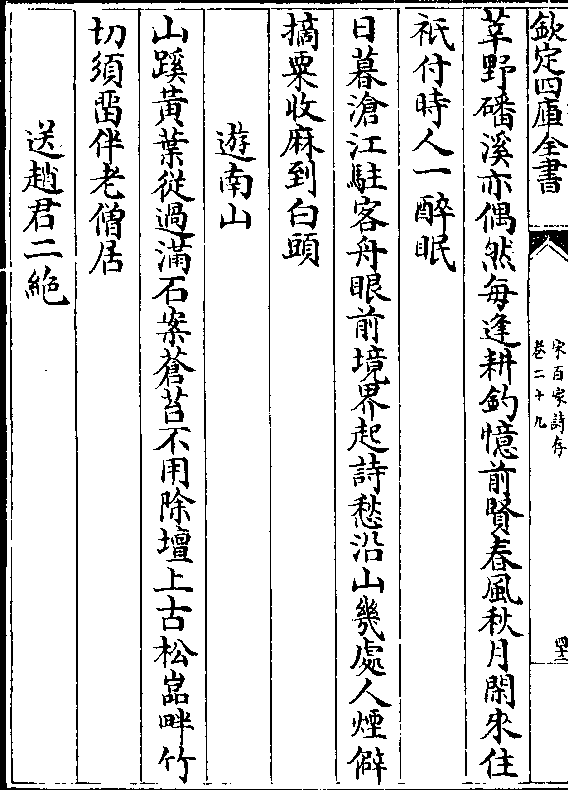 欽定四庫全書
宋百家詩存
卷二十九
莘野磻溪亦偶然每逢耕釣憶前賢春風秋月閑來往
祇付時人一醉眠
日暮滄江駐客舟眼前境界起詩愁沿山幾處人煙僻
摘粟收麻到白頭
遊南山
山蹊黃葉從過滿石案蒼苔不用除壇上古松嵓畔竹
切須畱伴老僧居
送趙君二絶